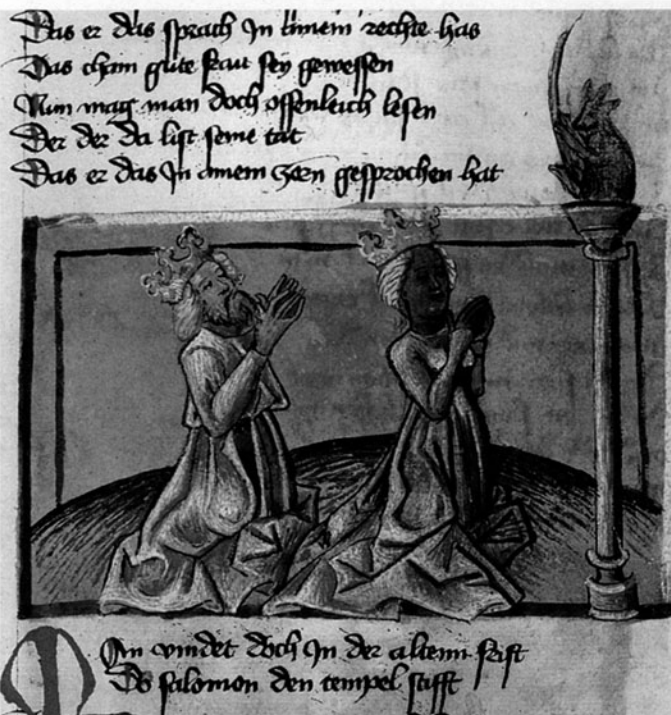 Das er das sprach Jn einem rechte has
Das cham gute frau sey gewessen
Nun mag man doch offenleich lesen
Der der da list seine tat
Das er das Jn ainem zorn gesprochen hat
Man vindet doch Jn der altenn
Do salomon den tempel stifft